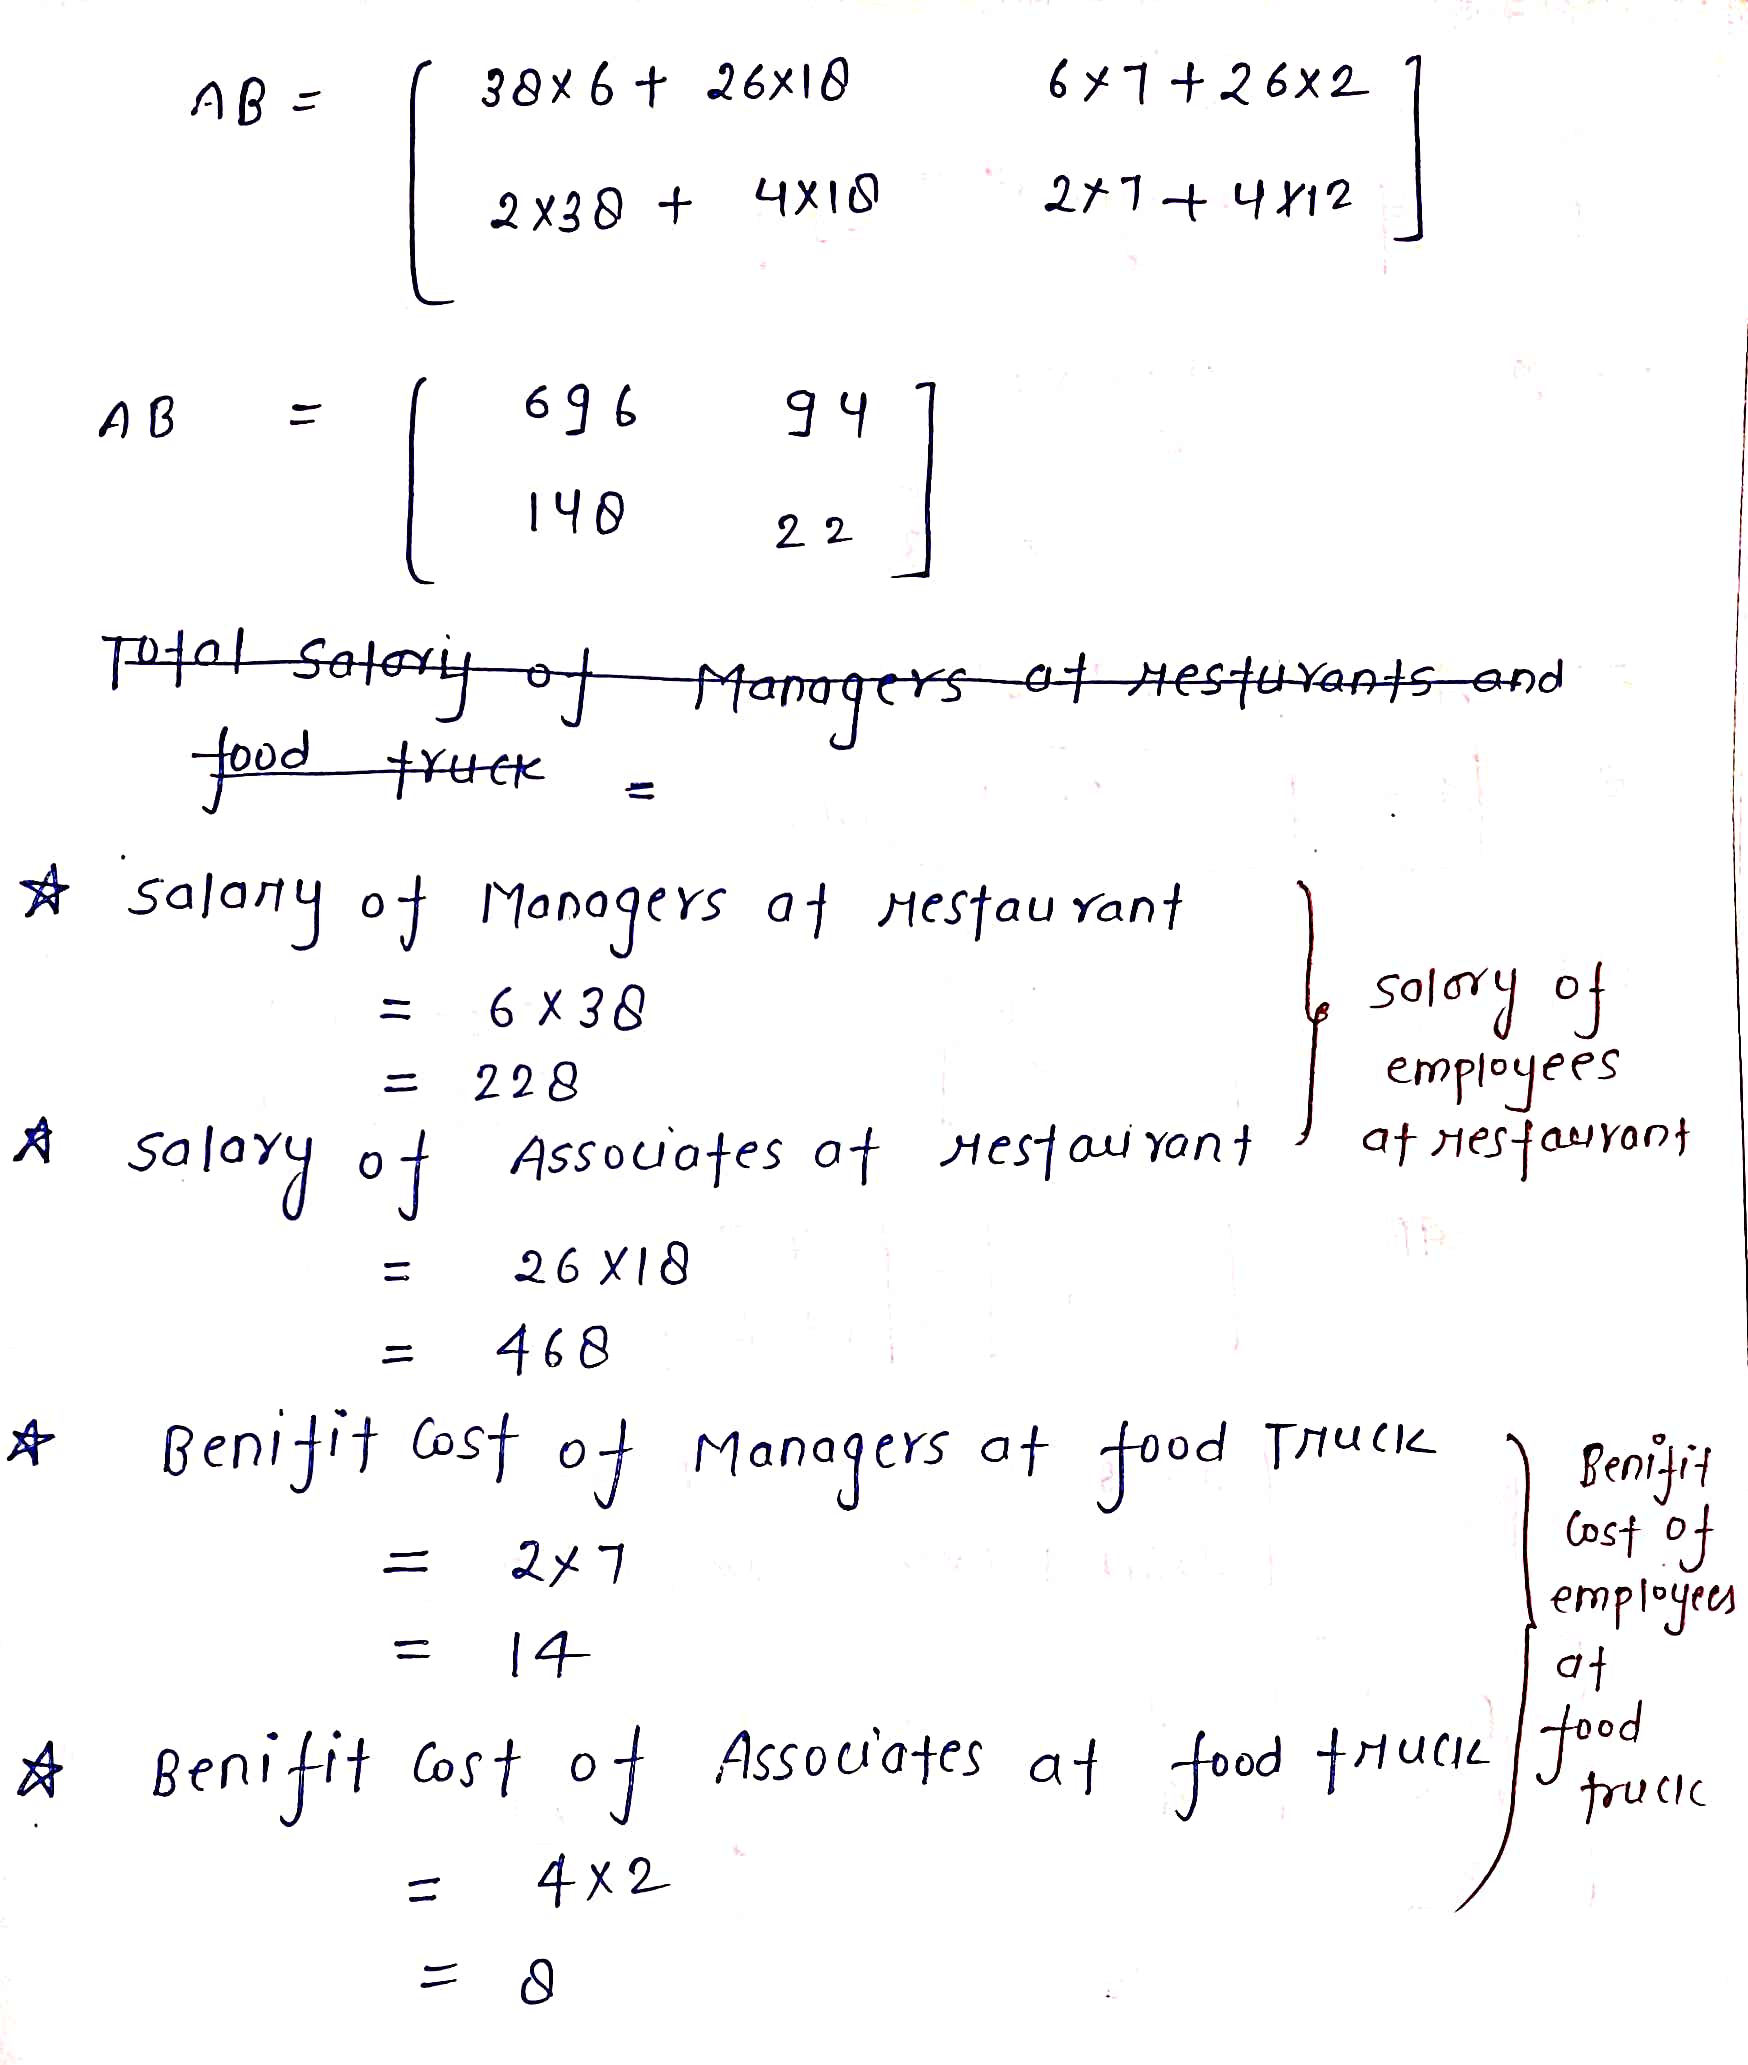 AB = [ 38×6 + 26×18 6×7 + 26×2 ]
2×38 + 4×18 2×7 + 4×12
AB = [ 696 94 ]
148 22
Total Salariy of Managers at resturants and
food truck =
☆ Salary of Managers at restaurant
= 6×38
= 228
☆ Salary of Associates at restaurant
= 26×18
= 468
salary of
employees
at restaurant
☆ Benifit Cost of Managers at food Truck
= 2×7
= 14
☆ Benifit Cost of Associates at food truck
= 4×2
= 8
Benifit
Cost of
employees
at
food
truck